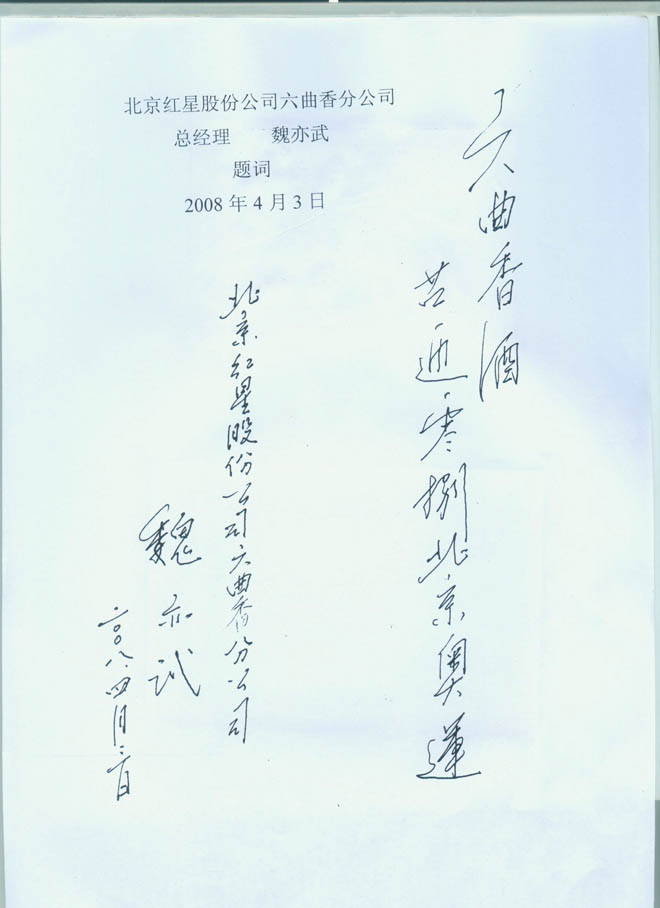 北京红星股份公司六曲香分公司
总经理 魏亦武
题词
2008 年 4 月 3 日
六曲香酒
迎零捌北京奥運
北京红星股份公司六曲香分公司
魏亦武
二00八.四月三日